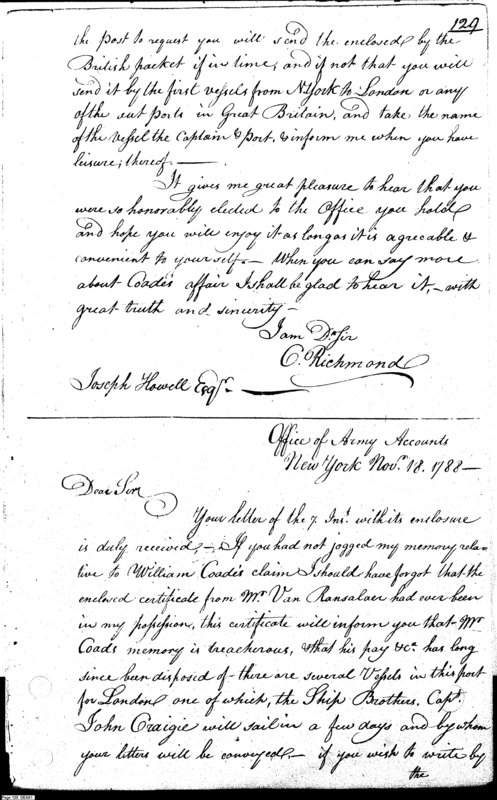 129
the Post to request you will send the enclosed by the
British packet if in time, and if not that you will
send it by the first vessels from N York to London or any
of the out ports in Great Britain, and take the name
of the Vessel the Captain & Port, & inform me when you have
leisure, thereof —
It gives me great pleasure to hear that you
were so honorably elected to the Office you hold
and hope you will enjoy it as long as it is agreeable &
convenient to yourself — When you can say more
about Coade's affair I shall be glad to hear it, — with
great truth and sincerity —
I am Dr Sir
C. Richmond
Joseph Howell Esqr. —
Office of Army Accounts
New York Novr. 18. 1788 —
Dear Sir
Your letter of the 7 Inst. with its enclosure
is duly received, — If you had not jogged my memory rela-
tive to William Coade's claim I should have forgot that the
enclosed certificate from Mr Van Ransalaer had ever been
in my possession, this certificate will inform you that Mr
Coads memory is treacherous, & that his pay &c. has long
since been disposed of - there are several Vessels in this port
for London one of which, the Ship Brothers, Capt.
John Craigie will sail in a few days and by whom
your letters will be conveyed, — if you wish to write by
the